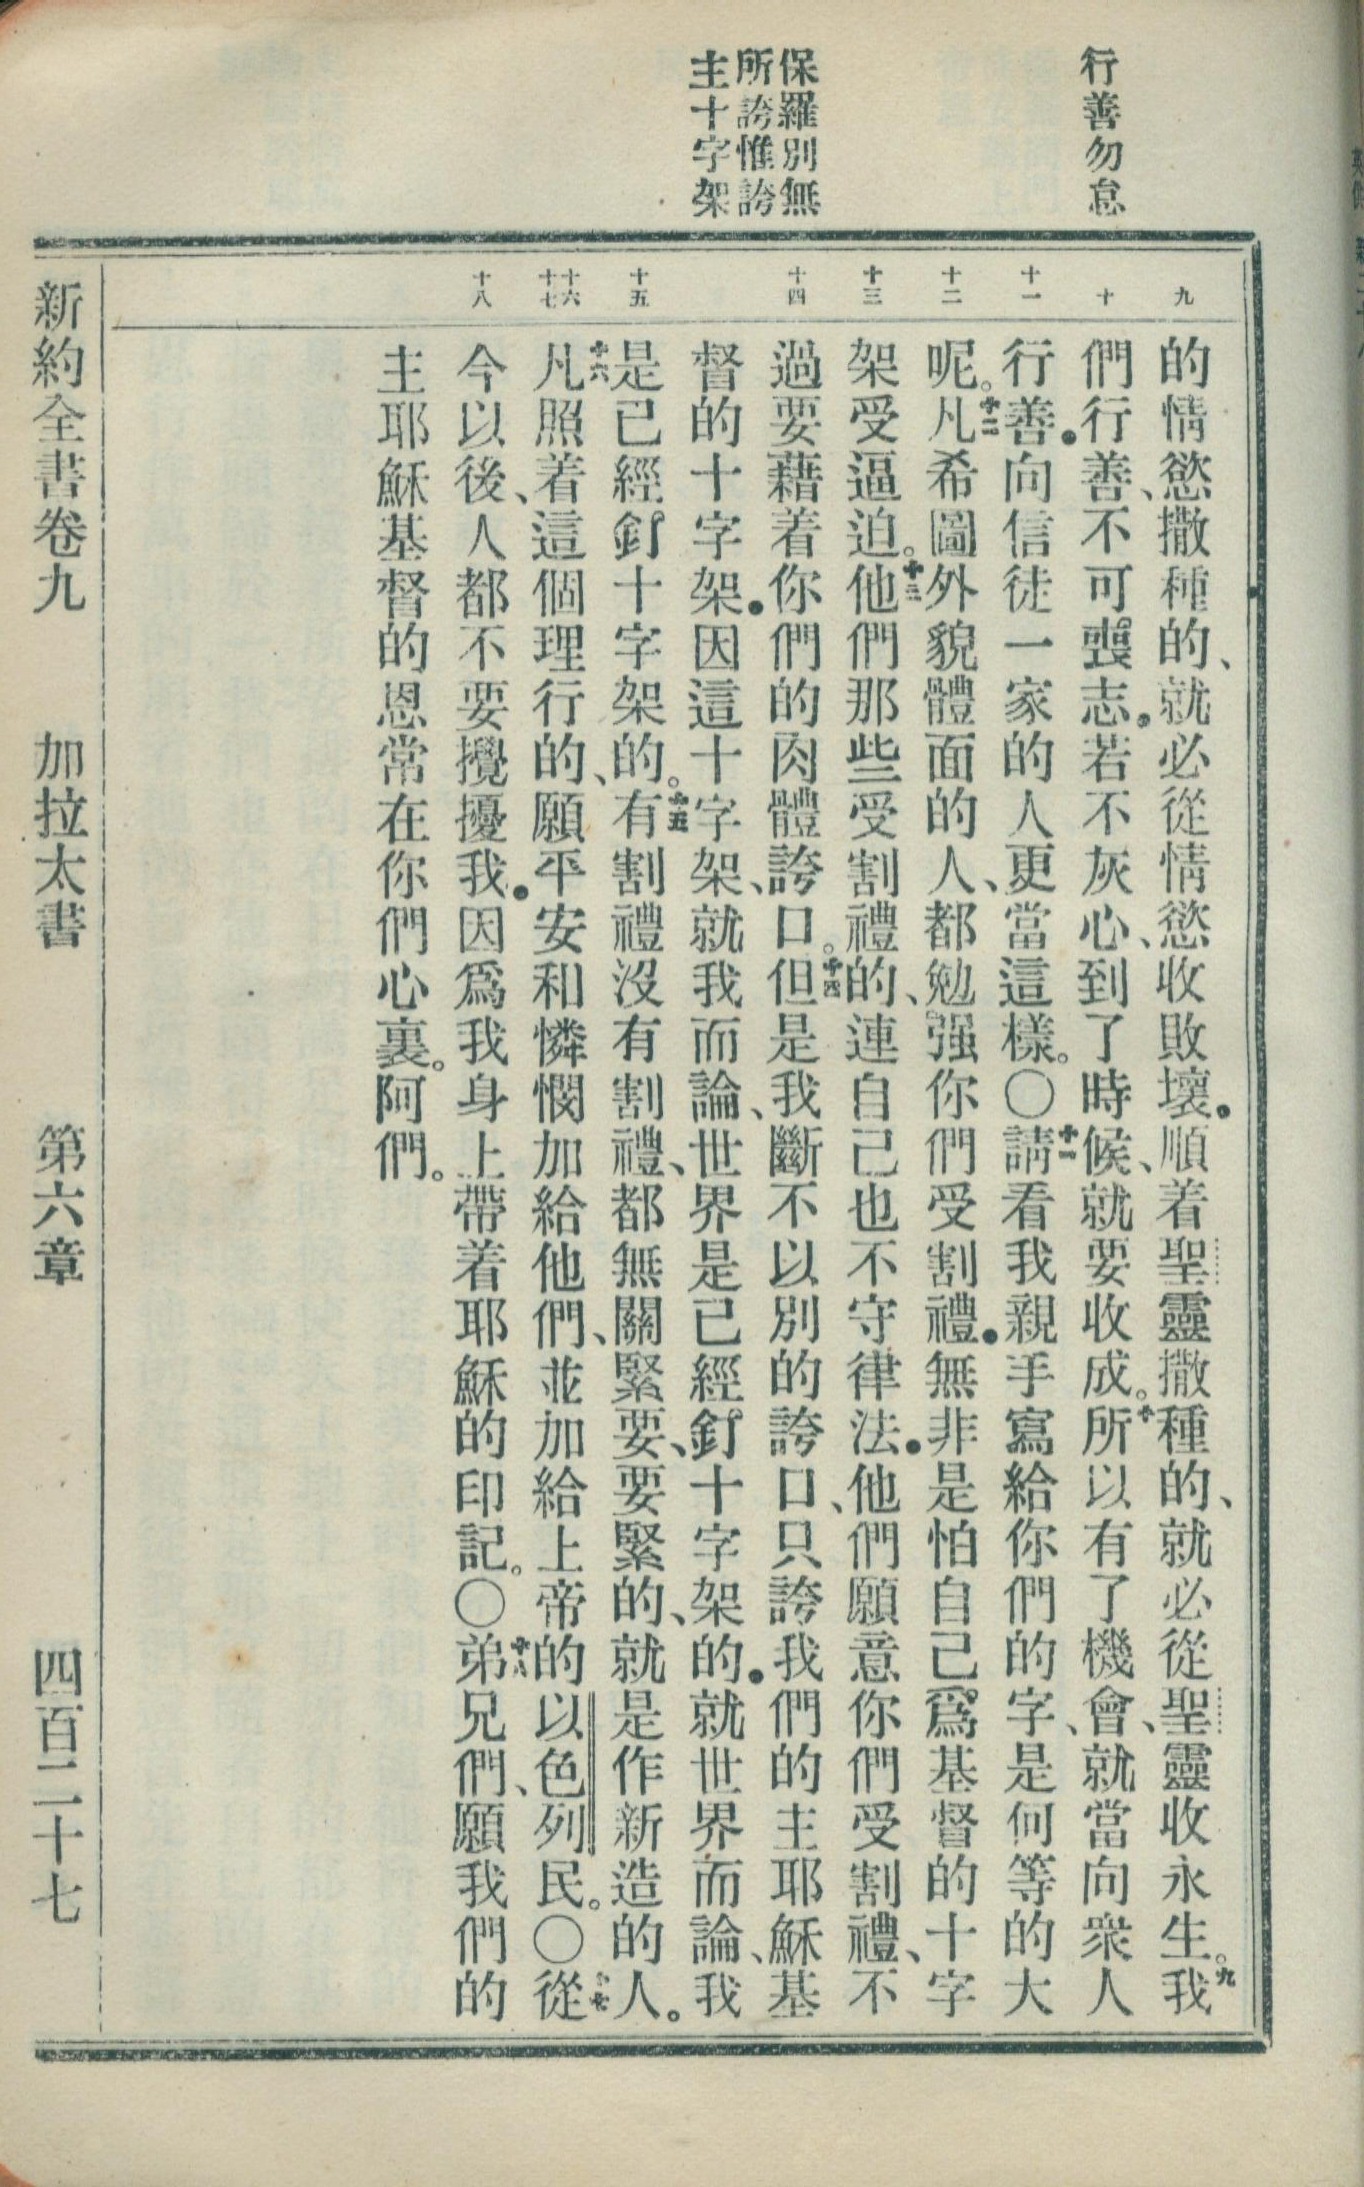 行善勿怠
保羅別無
所誇惟誇
主十字架
九
十
十一
十二
十三
十四
十五
十六
十七
十八
的情慾撒種的、就必從情慾收敗壞．順着聖靈撒種的、就必從聖靈收永生。九我
們行善、不可喪志．若不灰心、到了時候、就要收成。十所以有了機會、就當向衆人
行善．向信徒一家的人更當這樣。〇十一請看我親手寫給你們的字、是何等的大
呢。十二凡希圖外貌體面的人、都勉强你們受割禮．無非是怕自己爲基督的十字
架受逼迫。十三他們那些受割禮的、連自己也不守律法．他們願意你們受割禮、不
過要藉着你們的肉體誇口。十四但是我斷不以別的誇口、只誇我們的主耶穌基
督的十字架．因這十字架、就我而論、世界是已經釘十字架的．就世界而論、我
是已經釘十字架的。十五有割禮沒有割禮、都無關緊要、要緊的、就是作新造的人。
十六凡照着這個理行的、願平安和憐憫加給他們、並加給上帝的以色列民。〇十七從
今以後、人都不要攪擾我．因爲我身上帶着耶穌的印記。〇十八弟兄們、願我們的
主耶穌基督的恩常在你們心裏。阿們。
新約全書卷九 加拉太書 第六章 四百二十七